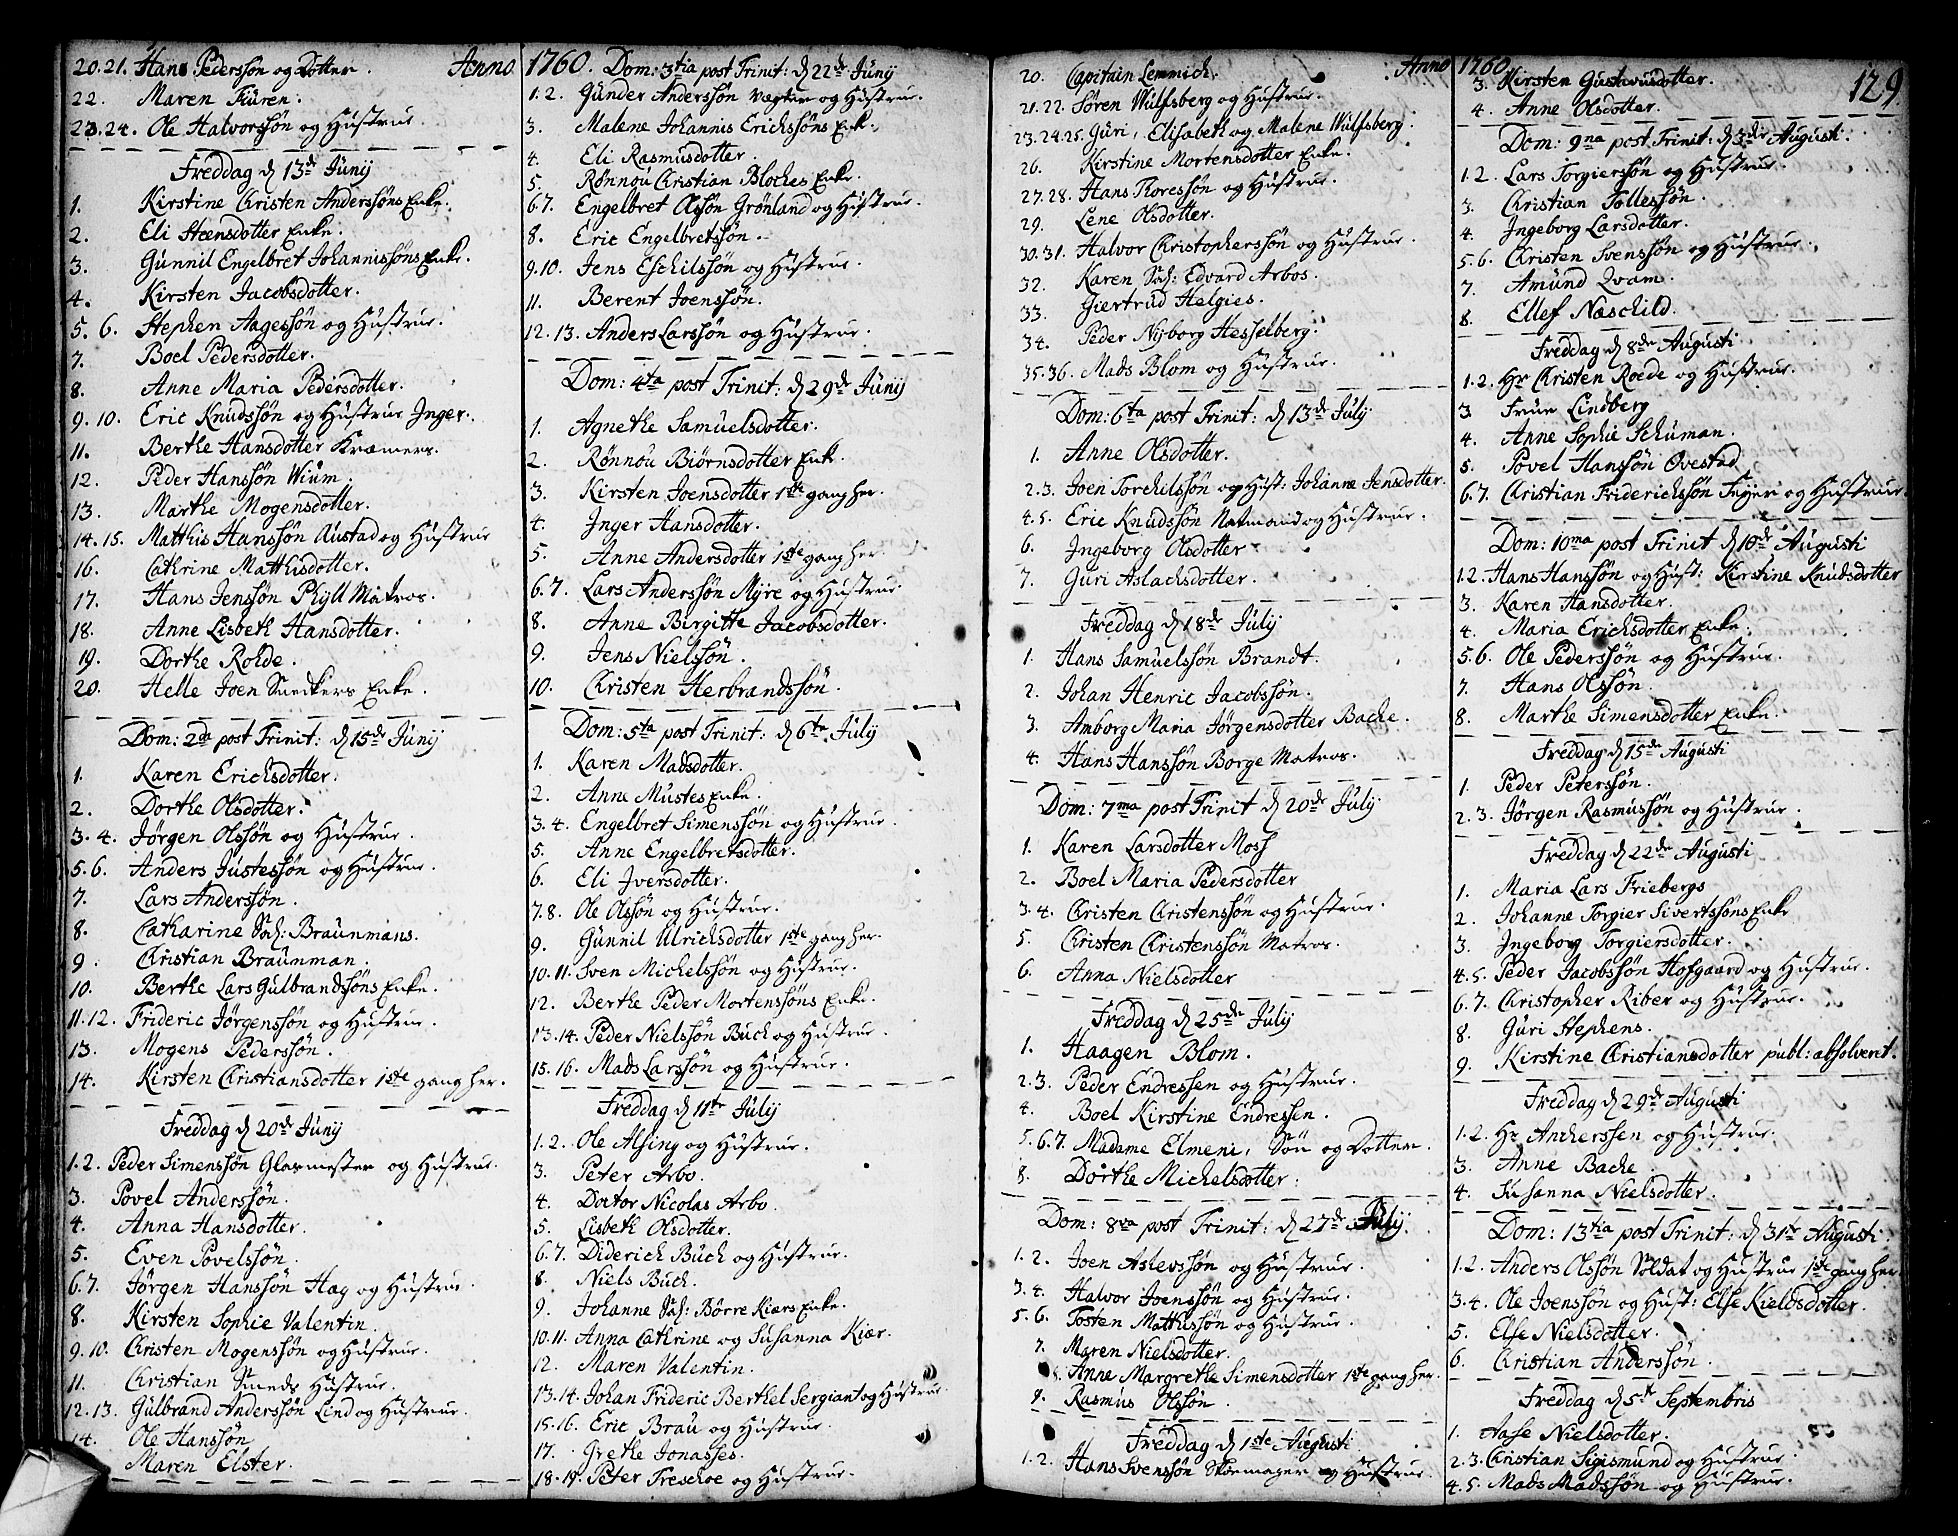 20.21. Hans Pederssøn og Dotter. Anno
22. Maren Füren.
23.24. Ole Halvorssøn og Hustrue.
Freddag d 13de Junij
1. Kirstine Christen Anderssøns Enke.
2. Eli Steensdotter Enke.
3. Gunnil Engelbret Johannissøns Enke.
4. Kirsten Jacobsdotter.
5. 6. Stephen Aagessøn og Hustrue.
7. Boel Pedersdotter.
8. Anne Maria Pedersdotter.
9. 10. Eric Knudssøn og Hustrue Inger.
11. Berthe Hansdotter Kræmers.
12. Peder Hanssøn Wium.
13. Marthe Mogensdotter.
14.15. Matthis Hanssøn Austad og Hustrue
16. Cathrine Matthisdotter.
17. Hans Jenssøn Phyll Matros.
18. Anne Lisbeth Hansdotter.
19. Dorthe Rohde.
20. Helle Joen Snedkers Enke.
Dom: 2da post Trinit: d 15de Junij
1. Karen Erichsdotter.
2. Dorthe Olsdotter.
3. 4. Jørgen Olssøn og Hustrue.
5. 6. Anders Justessøn og Hustrue.
7. Lars Anderssøn.
8. Catharine Sal: Braunmans.
9. Christian Braunman.
10. Berthe Lars Gulbrandsøns Enke.
11.12. Frideric Jørgenssøn og Hustrue.
13. Mogens Pederssøn.
14. Kirsten Christiansdotter 1ste gang her.
Freddag d 20de Junij
1.2. Peder Simenssøn Glarmester og Hustrue.
3. Povel Anderssøn.
4. Anna Hansdotter.
5. Even Povelssøn.
6.7. Jørgen Hanssøn Hag og Hustrue.
8. Kirsten Sophie Valentin.
9. 10. Christen Mogenssøn og Hustrue.
11. Christian Smeds Hustrue.
12.13. Gulbrand Anderssøn Lind og Hustrue.
14. Ole Hanssøn
Maren Elster.
1760. Dom: 3tia post Trinit: d 22de Junij
1.2. Gunder Anderssøn Vægter og Hustrue.
3. Malene Johannis Erichssøns Enk:
4. Eli Rasmusdotter.
5. Rønnou Christian Bloches Enke.
6.7. Engelbret Olssøn Grønland og Hustrue.
8. Eric Engelbretssøn.
9.10. Jens Eschilssøn og Hustrue.
11. Berent Joenssøn.
12. 13. Anders Larssøn og Hustrue.
Dom: 4ta post Trinit: d 29de Junij
1. Agnethe Samuelsdotter.
2. Rønnou Biørnsdotter Enk.
3. Kirsten Joensdotter 1ste gang her.
4. Inger Hansdotter.
5. Anne Andersdotter 1ste gang her.
6.7. Lars Anderssøn Myre og Hustrue.
8. Anne Birgitte Jacobsdotter.
9. Jens Nielssøn.
10. Christen Herbrandssøn.
Dom: 5ta post Trinit: d 6te Julij
1. Karen Madsdotter.
2. Anne Mustes Enke.
3. 4. Engelbret Simenssøn og Hustrue.
5. Anne Engelbretsdotter.
6. Eli Iversdotter.
7.8. Ole Olssøn og Hustrue.
9. Gunnil Ulrichsdotter 1ste gang her.
10.11. Sven Michelssøn og Hustrue.
12. Berthe Peder Mortenssøns Enke.
13.14. Peder Nielssøn Buch og Hustrue.
15.16. Mads Larssøn og Hustrue.
Freddag d 11te Julij
1.2. Ole Alsing og Hustrue.
3. Peter Arbo.
4. Doctor Nicolas Arbo.
5. Lisbeth Olsdotter.
6.7. Diderich Buch og Hustrue.
8. Niels Buch.
9. Johanne Sal: Børre Kiærs Enke.
10.11. Anna Cathrine og Susanna Kiær.
12. Maren Valentin.
13.14. Johan Frideric Berthel Sergiant og Hustrue
15.16. Eric Brau og Hustrue
17. Grethe Jonasses.
18.19. Peter Treschoe og Hustrue.
Anno 1760. 129
20. Capitain Lemmich.
21.22. Søren Wulfsberg og Hustrue.
23.24.25. Guri, Elisabeth og Malene Wulfsberg.
26. Kirstine Mortensdotter Enke.
27.28. Hans Thoressøn og Hustrue.
29. Lene Olsdotter.
30.31. Halvor Christopherssøn og Hustrue.
32. Karen Sal: Edvard Arbos.
33. Giertrud Helgies.
34. Peder Nyborg Hesselberg.
35.36. Mads Blom og Hustrue.
Dom: 6ta post Trinit: d 13de Julij
1. Anne Olsdotter.
2.3. Joen Torchilssøn og Hust: Johanne Jensdotter.
4.5. Eric Knudssøn Natmand og Hustrue.
6. Ingeborg Olsdotter
7. Guri Aslachsdotter.
Freddag d 18de Julij
1. Hans Samuelssøn Brandt.
2. Johan Henric Jacobssøn.
3. Amborg Maria Jørgensdotter Bache.
4. Hans Hanssøn Borge Matros.
Dom: 7ma post Trinit d 20de Julij
1. Karen Larsdotter Moss
2. Boel Maria Pedersdotter
3.4. Christen Christenssøn og Hustrue.
5. Christen Christenssøn Matros.
6. Anna Nielsdotter
Freddag d 25de Julij
1. Haagen Blom.
2.3. Peder Endressen og Hustrue.
4. Boel Kirstine Endressen.
5. 6.7. Madame Elmeni, Søn og Dotter.
8. Dorthe Michelsdotter.
Dom: 8va post Trinit: d 27de Julij.
1. 2. Joen Aslevssøn og Hustrue.
3. 4. Halvor Joenssøn og Hustrue.
5. 6. Tosten Matthissøn og Hustrue.
7. Maren Nielsdotter.
8. Anne Margrethe Simensdotter 1ste gang her.
9. Rasmus Olssøn.
Freddag d 1ste Augusti
1.2. Hans Svenssøn Skoemager og Hustrue.
3. Kirsten Gustavusdotter.
4. Anne Olsdotter.
Dom: 9na post Trinit: d 3die Augusti
1.2. Lars Torgierssøn og Hustrue.
3. Christian Tollessøn.
4. Ingeborg Larsdotter.
5.6. Christen Svenssøn og Hustrue.
7. Amund Qvam.
8. Ellef Næschild.
Freddag d 8de Augusti
1.2. Hr Christen Roede og Hustrue.
3 Frue Lindberg
4. Anne Sophie Schuman.
5. Povel Hanssøn Qvestad
6.7. Christian Friderichssøn Feyer og Hustrue.
Dom: 10ma post Trinit d 10de Augusti
1.2. Hans Hanssøn og Hust: Kirstine Knudsdotter
3. Karen Hansdotter.
4. Maria Erichsdotter Enke.
5.6. Ole Pederssøn og Hustrue.
7. Hans Olssøn.
8. Marthe Simensdotter Enke.
Freddag d 15de Augusti
1. Peder Peterssøn.
2. 3. Jørgen Rasmussøn og Hustrue.
Freddag d 22de Augusti
1. Maria Lars Friebergs
2. Johanne Torgier Sivertssøns Enke
3. Ingeborg Torgiersdotter.
4.5. Peder Jacobssøn Hofgaard og Hustrue.
6.7. Christopher Riber og Hustrue.
8. Guri Stephens.
9. Kirstine Christiansdotter publ: absolveret.
Freddag d 29de Augusti
1.2. Hr Ancherssen og Hustrue.
3. Anne Bache.
4. Susanna Nielsdotter.
Dom: 13tia post Trinit: d 31te Augusti
1.2. Anders Olssøn Soldat og Hustrue 1ste gang her.
3.4. Ole Joenssøn og Hust: Else Kieldsdotter.
5. Else Nielsdotter.
6. Christian Anderssøn.
Freddag d 5te Septembris
1. Aase Nielsdotter.
2.3. Christian Sigismund og Hustrue
4.5. Mads Madssøn og Hustrue.